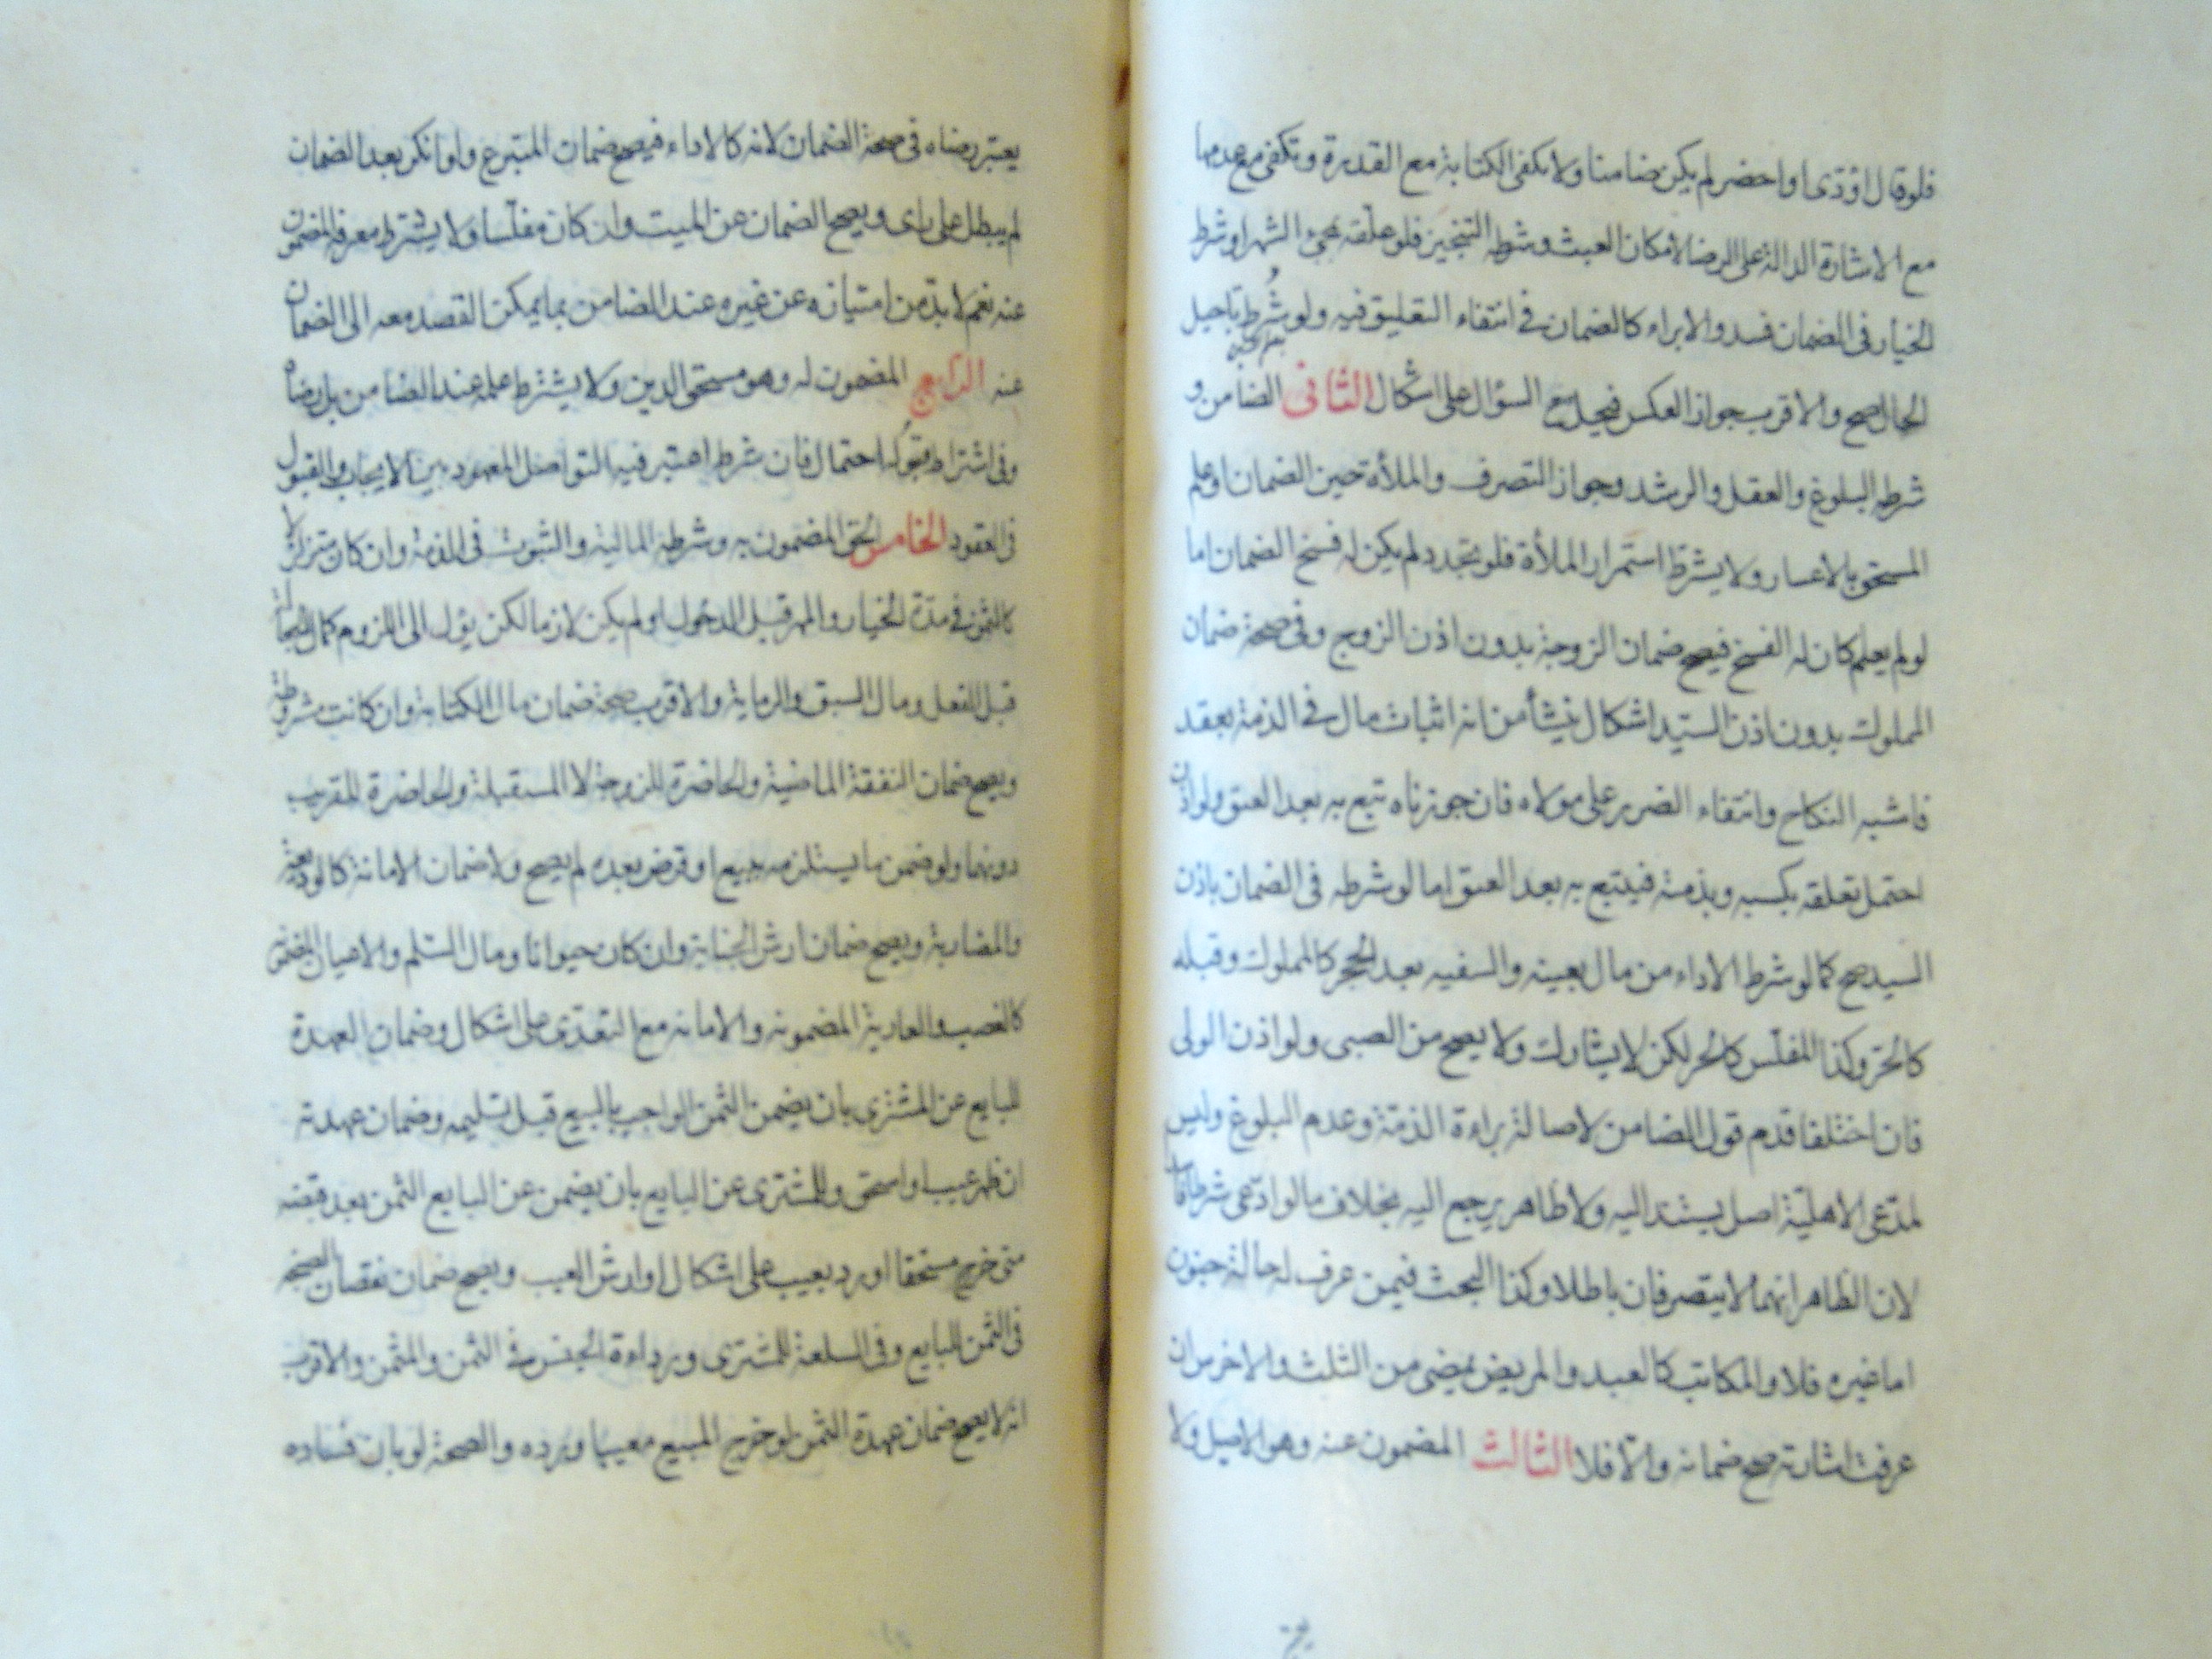 فلو قال اؤدى او احضر لم يكن ضامنا ولا يكفى الكتابة مع القدرة وتكفى مع عدمها
مع الاشارة الدالة على الرضا لامكان العبث وشرطه التنجيز فلو علقه بمجئ الشهر او شرط
الخيار فى الضمان فسد والابراء كالضمان فى انتفاء التعليق فيه ولو شُرط تاجيل
الحال صح والاقرب جواز العكس فيحل مع السؤال على اشكال الثانى الضامن و
شرطه البلوغ والعقل والرشد وجواز التصرف والملأة حين الضمان او علم
المستحق بالاعسار ولا يشترط استمرار الملأة فلو تجدد لم يكن له فسخ الضمان اما
لو لم يعلم كان له الفسخ فيصح ضمان الزوجة بدون اذن الزوج وفى صحة ضمان
المملوك بدون اذن السيد اشكال ينشأ من انه اثبات مال فى الذمة بعقد
فاشبه النكاح وانتفاء الضرر على مولاه فان جوزناه تبع به بعد العتق ولو اذن
احتمل تعلقه بكسبه وبذمته فيتبع به بعد العتق اما لو شرطه فى الضمان باذن
السيد صح كما لو شرط الاداء من مال بعينه والسفيه بعد الحجر كالمملوك وقبله
كالحر وكذا المفلس كالحر لكن لا يشارك ولا يصح من الصبى ولو اذن الولى
فان اختلفا قدم قول الضامن لاصالة براءة الذمة وعدم البلوغ وليس
لمدعى الاهلية اصل يستند اليه ولا ظاهر يرجع اليه بخلاف ما لو ادعى شرطا فا
لان الظاهر انهما لا يتصرفان باطلا وكذا البحث فيمن عرف له حالة جنون
اما غيره فلا والمكاتب كالعبد والمريض يمضى من الثلث والاخرس ان
عرفت اشارته صح ضمانه والا فلا الثالث المضمون عنه وهو الاصيل ولا
يعتبر رضاه فى صحة الضمان لانه كالاداء فيصح ضمان المتبرع ولو انكر بعد الضمان
لم يبطل على راى ويصح الضمان عن الميت وان كان مفلسا ولا يشترط معرفة المضمون
عنه نعم لا بد من امتيازه عن غيره عند الضامن بما يمكن القصد معه الى الضمان
عنه الرابع المضمون له وهو مستحق الدين ولا يشترط علمه عند الضامن بل رضاه
وفى اشتراط قبوله احتمال فان شرط اعتبر فيه التواصل المعهود بين الايجاب والقبول
فى العقود الخامس الحق المضمون به وشرطه المالية والثبوت فى الذمة وان كان متزلزلا
كالثمن فى مدة الخيار والمهر قبل الدخول او لم يكن لازما لكن يؤل الى اللزوم كمال الجعالة
قبل الفعل ومال السبق والرماية والاقرب صحة ضمان مال الكتابة وان كانت مشروطة
ويصح ضمان النفقة الماضية والحاضرة للزوجة لا المستقبلة والحاضرة للقريب
دونهما ولو ضمن ما يستلزمه ببيع او قرض بعده لم يصح ولا ضمان الامانة كالوديعة
والمضاربة ويصح ضمان ارش الجناية وان كان حيوانا ومال السلم والاعيان المضمونة
كالغصب والعارية المضمونه والامانه مع التعدى على اشكال وضمان العهدة
للبايع عن المشترى بان يضمن الثمن الواجب بالبيع قبل تسليمه وضمان عهدته
ان ظهر عيب او استحق وللمشترى عن البايع بان يضمن عن البايع الثمن بعد قبضه
متى خرج مستحقا او رد بعيب على اشكال او ارش العيب ويصح ضمان نقصان الصنجة
فى الثمن للبايع وفى السلعة للمشترى ورداءة الجنس فى الثمن والمثمن والاقرب
انه لا يصح ضمان عهدة الثمن لو خرج المبيع معيبا ورده والصحة لو بان فساده